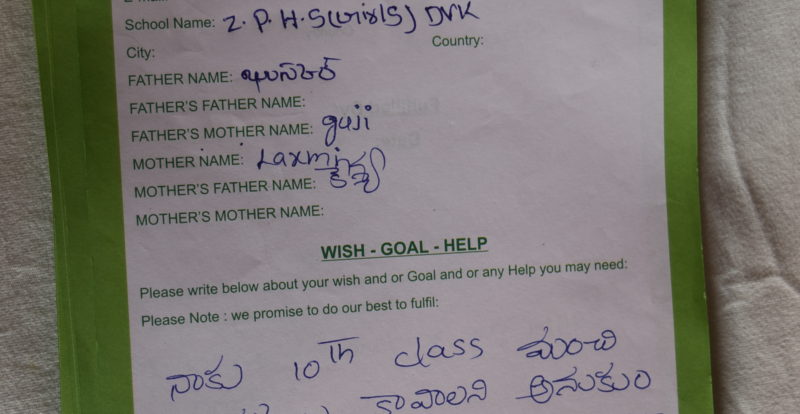 School Name: Z.P.H.S(Girls) DVK
City: Country:
FATHER NAME:
FATHER'S FATHER NAME:
FATHER'S MOTHER NAME: guji
MOTHER NAME: Laxmi
MOTHER'S FATHER NAME:
MOTHER'S MOTHER NAME:
WISH - GOAL - HELP
Please write below about your wish and or Goal and or any Help you may need:
Please Note : we promise to do our best to fulfil:
నాకు 10TH class మంచి
కావాలని అనుకుం